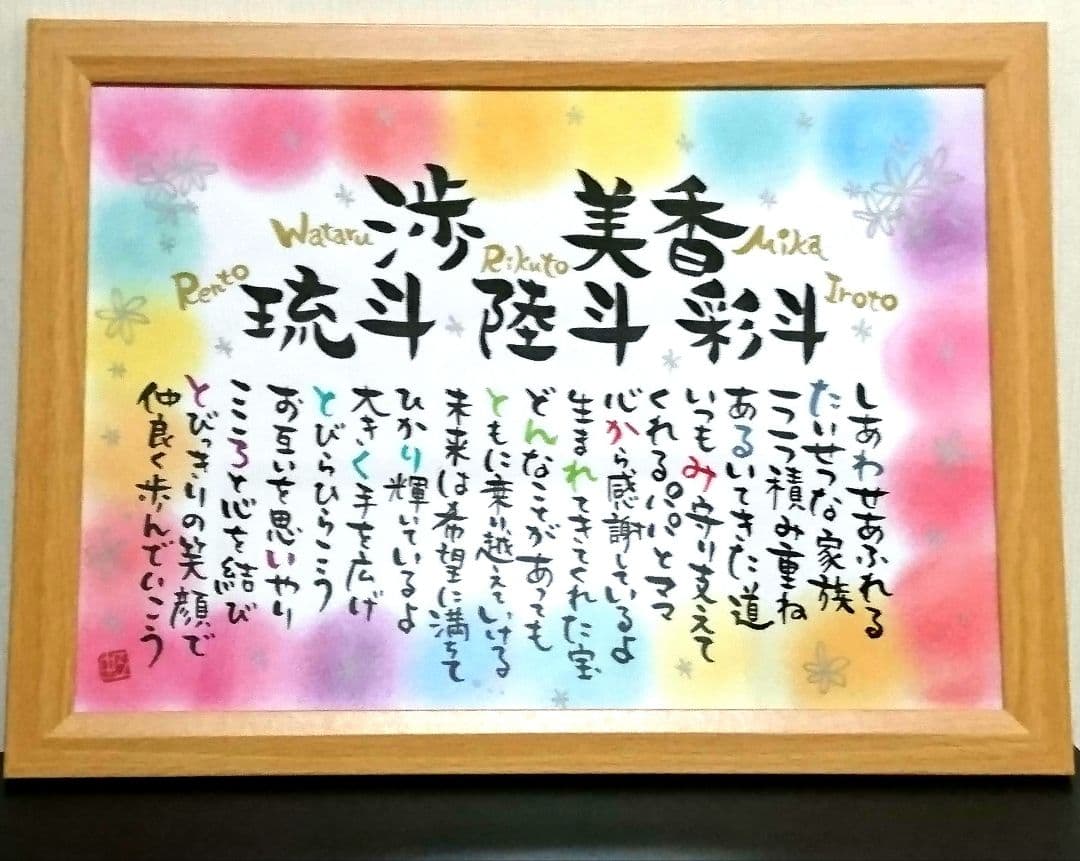 Wataru 渉 美香 Mika
Rento 琉斗 Rikuto 陸斗 彩斗 Iroto
しあわせあふれる
たいせつな家族
一つ一つ積み重ね
あるいてきた道
いつもみ守り支えて
くれるパパとママ
心から感謝しているよ
生まれてきてくれた宝
どんなことがあっても
ともに乗り越えていける
未来は希望に満ちて
ひかり輝いているよ
大きく手を広げ
とびらひらこう
お互いを思いやり
こころと心を結び
とびっきりの笑顔で
仲良く歩んでいこう